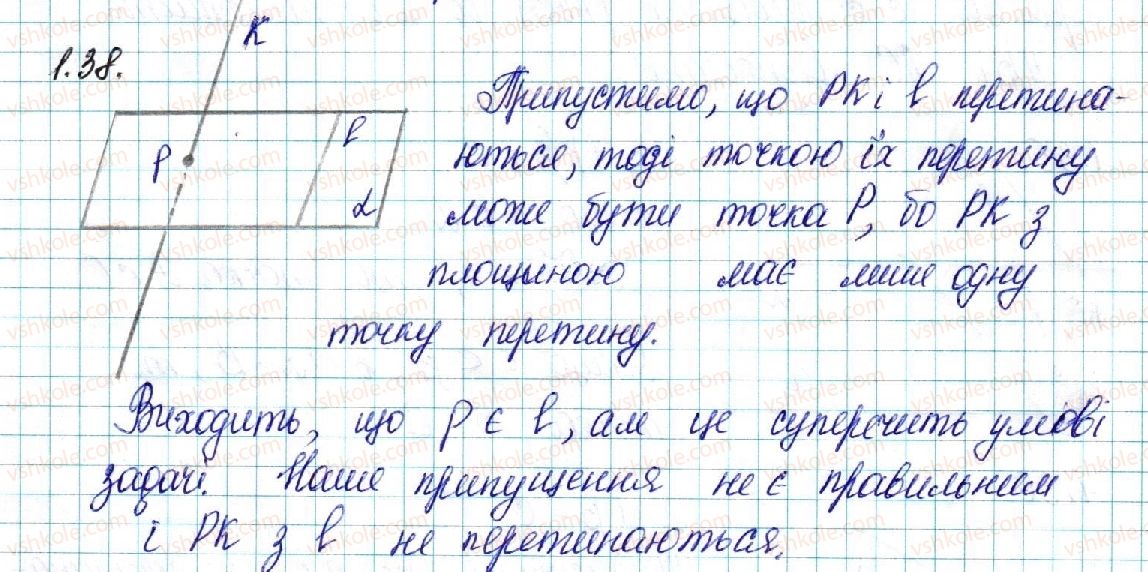 1.38.
K
P
b
α
Припустимо, що PK і b перетина-
ються, тоді точкою їх перетину
може бути точка P, бо PK з
площиною має лише одну
точку перетину.
Виходить, що P ∈ b, але це суперечить умові
задачі. Наше припущення не є правильним
і PK з b не перетинаються.